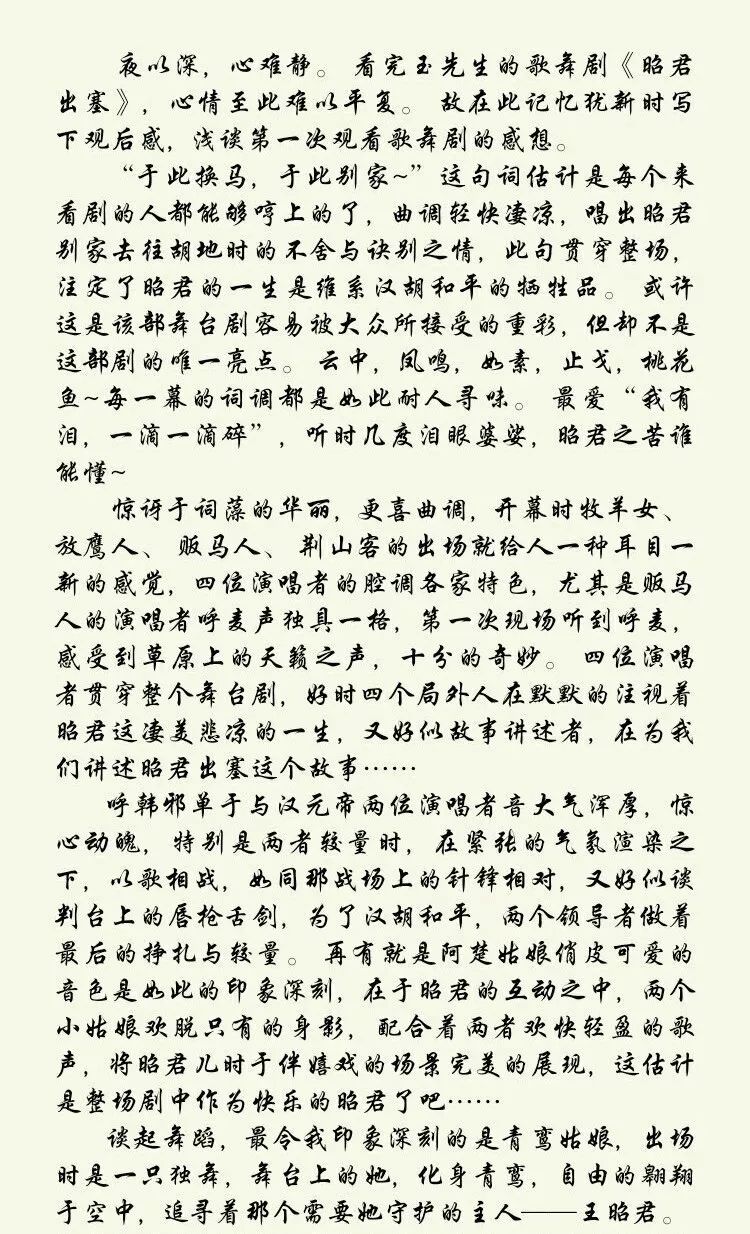 夜以深，心难静。 看完玉先生的歌舞剧《昭君
出塞》，心情至此难以平复。 故在此记忆犹新时写
下观后感，浅谈第一次观看歌舞剧的感想。
“于此换马，于此别家~”这句词估计是每个来
看剧的人都能够哼上的了，曲调轻快凄凉，唱出昭君
别家去往胡地时的不舍与诀别之情，此句贯穿整场，
注定了昭君的一生是维系汉胡和平的牺牲品。 或许
这是该部舞台剧容易被大众所接受的重彩，但却不是
这部剧的唯一亮点。 云中，凤鸣，如素，止戈，桃花
鱼~每一幕的词调都是如此耐人寻味。 最爱“我有
泪，一滴一滴碎”，听时几度泪眼婆娑，昭君之苦谁
能懂~
惊讶于词藻的华丽，更喜曲调，开幕时牧羊女、
放鹰人、 贩马人、 荆山客的出场就给人一种耳目一
新的感觉，四位演唱者的腔调各家特色，尤其是贩马
人的演唱者呼麦声独具一格，第一次现场听到呼麦，
感受到草原上的天籁之声，十分的奇妙。 四位演唱
者贯穿整个舞台剧，好时四个局外人在默默的注视着
昭君这凄美悲凉的一生，又好似故事讲述者，在为我
们讲述昭君出塞这个故事……
呼韩邪单于与汉元帝两位演唱者音大气浑厚，惊
心动魄，特别是两者较量时，在紧张的气氛渲染之
下，以歌相战，如同那战场上的针锋相对，又好似谈
判台上的唇枪舌剑，为了汉胡和平，两个领导者做着
最后的挣扎与较量。 再有就是阿楚姑娘俏皮可爱的
音色是如此的印象深刻，在于昭君的互动之中，两个
小姑娘欢脱只有的身影，配合着两者欢快轻盈的歌
声，将昭君儿时于伴嬉戏的场景完美的展现，这估计
是整场剧中作为快乐的昭君了吧……
谈起舞蹈，最令我印象深刻的是青鸾姑娘，出场
时是一只独舞，舞台上的她，化身青鸾，自由的翱翔
于空中，追寻着那个需要她守护的主人——王昭君。